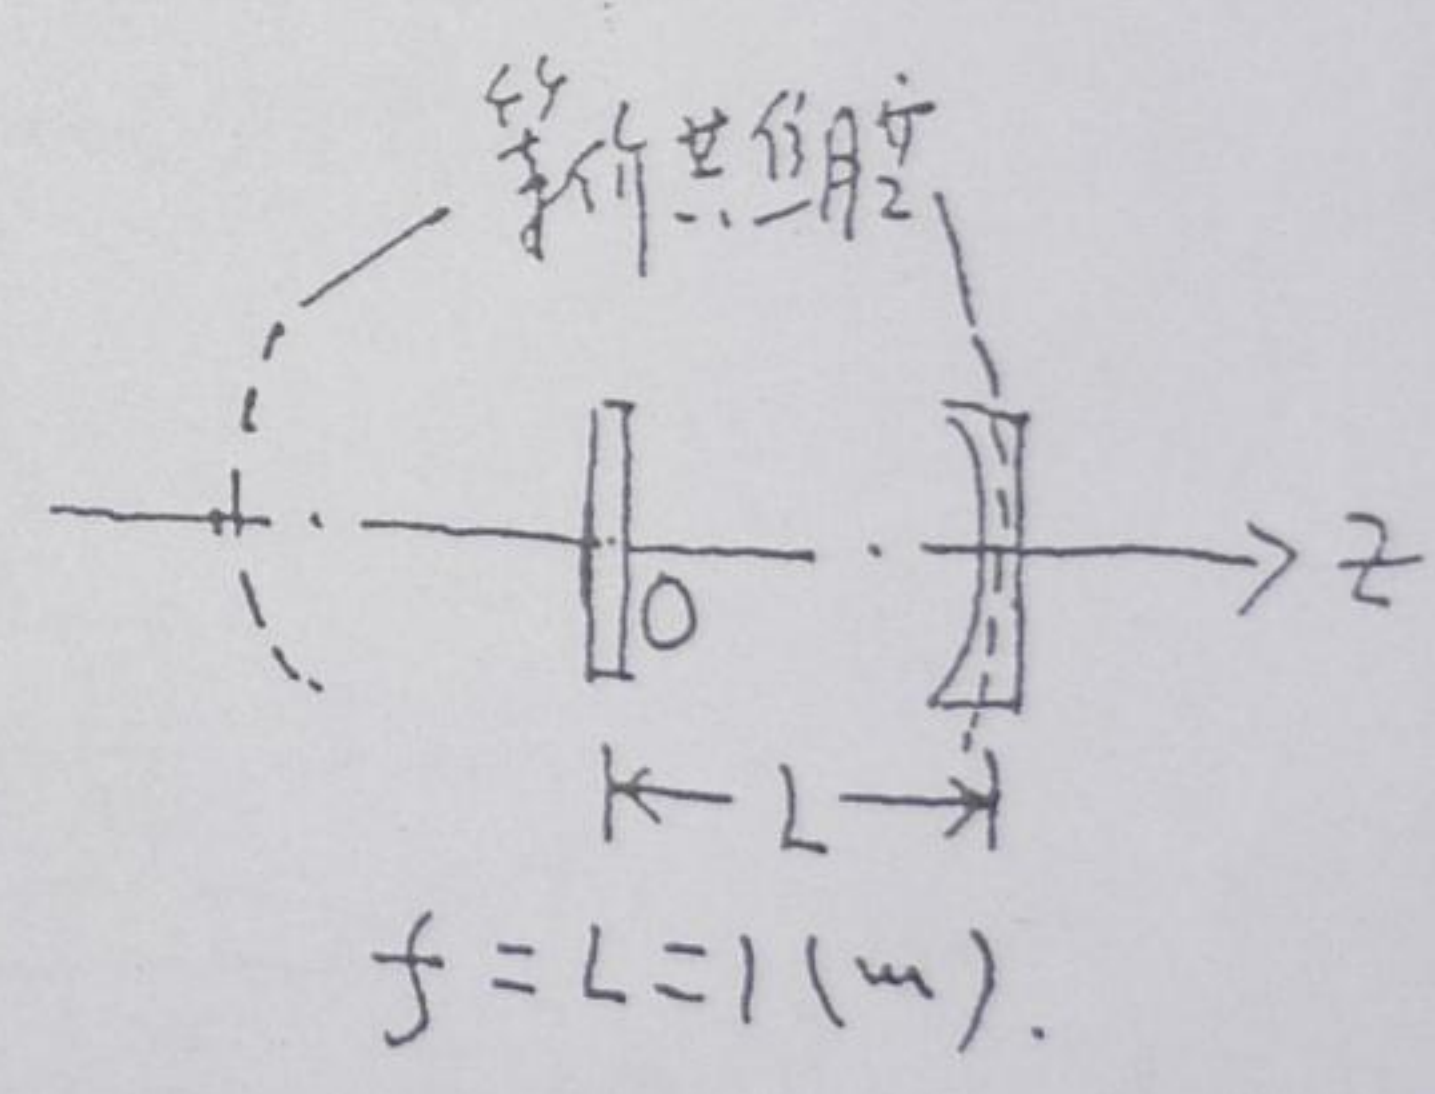 等价共焦腔
Z
O
L
f = L = 1 (m).